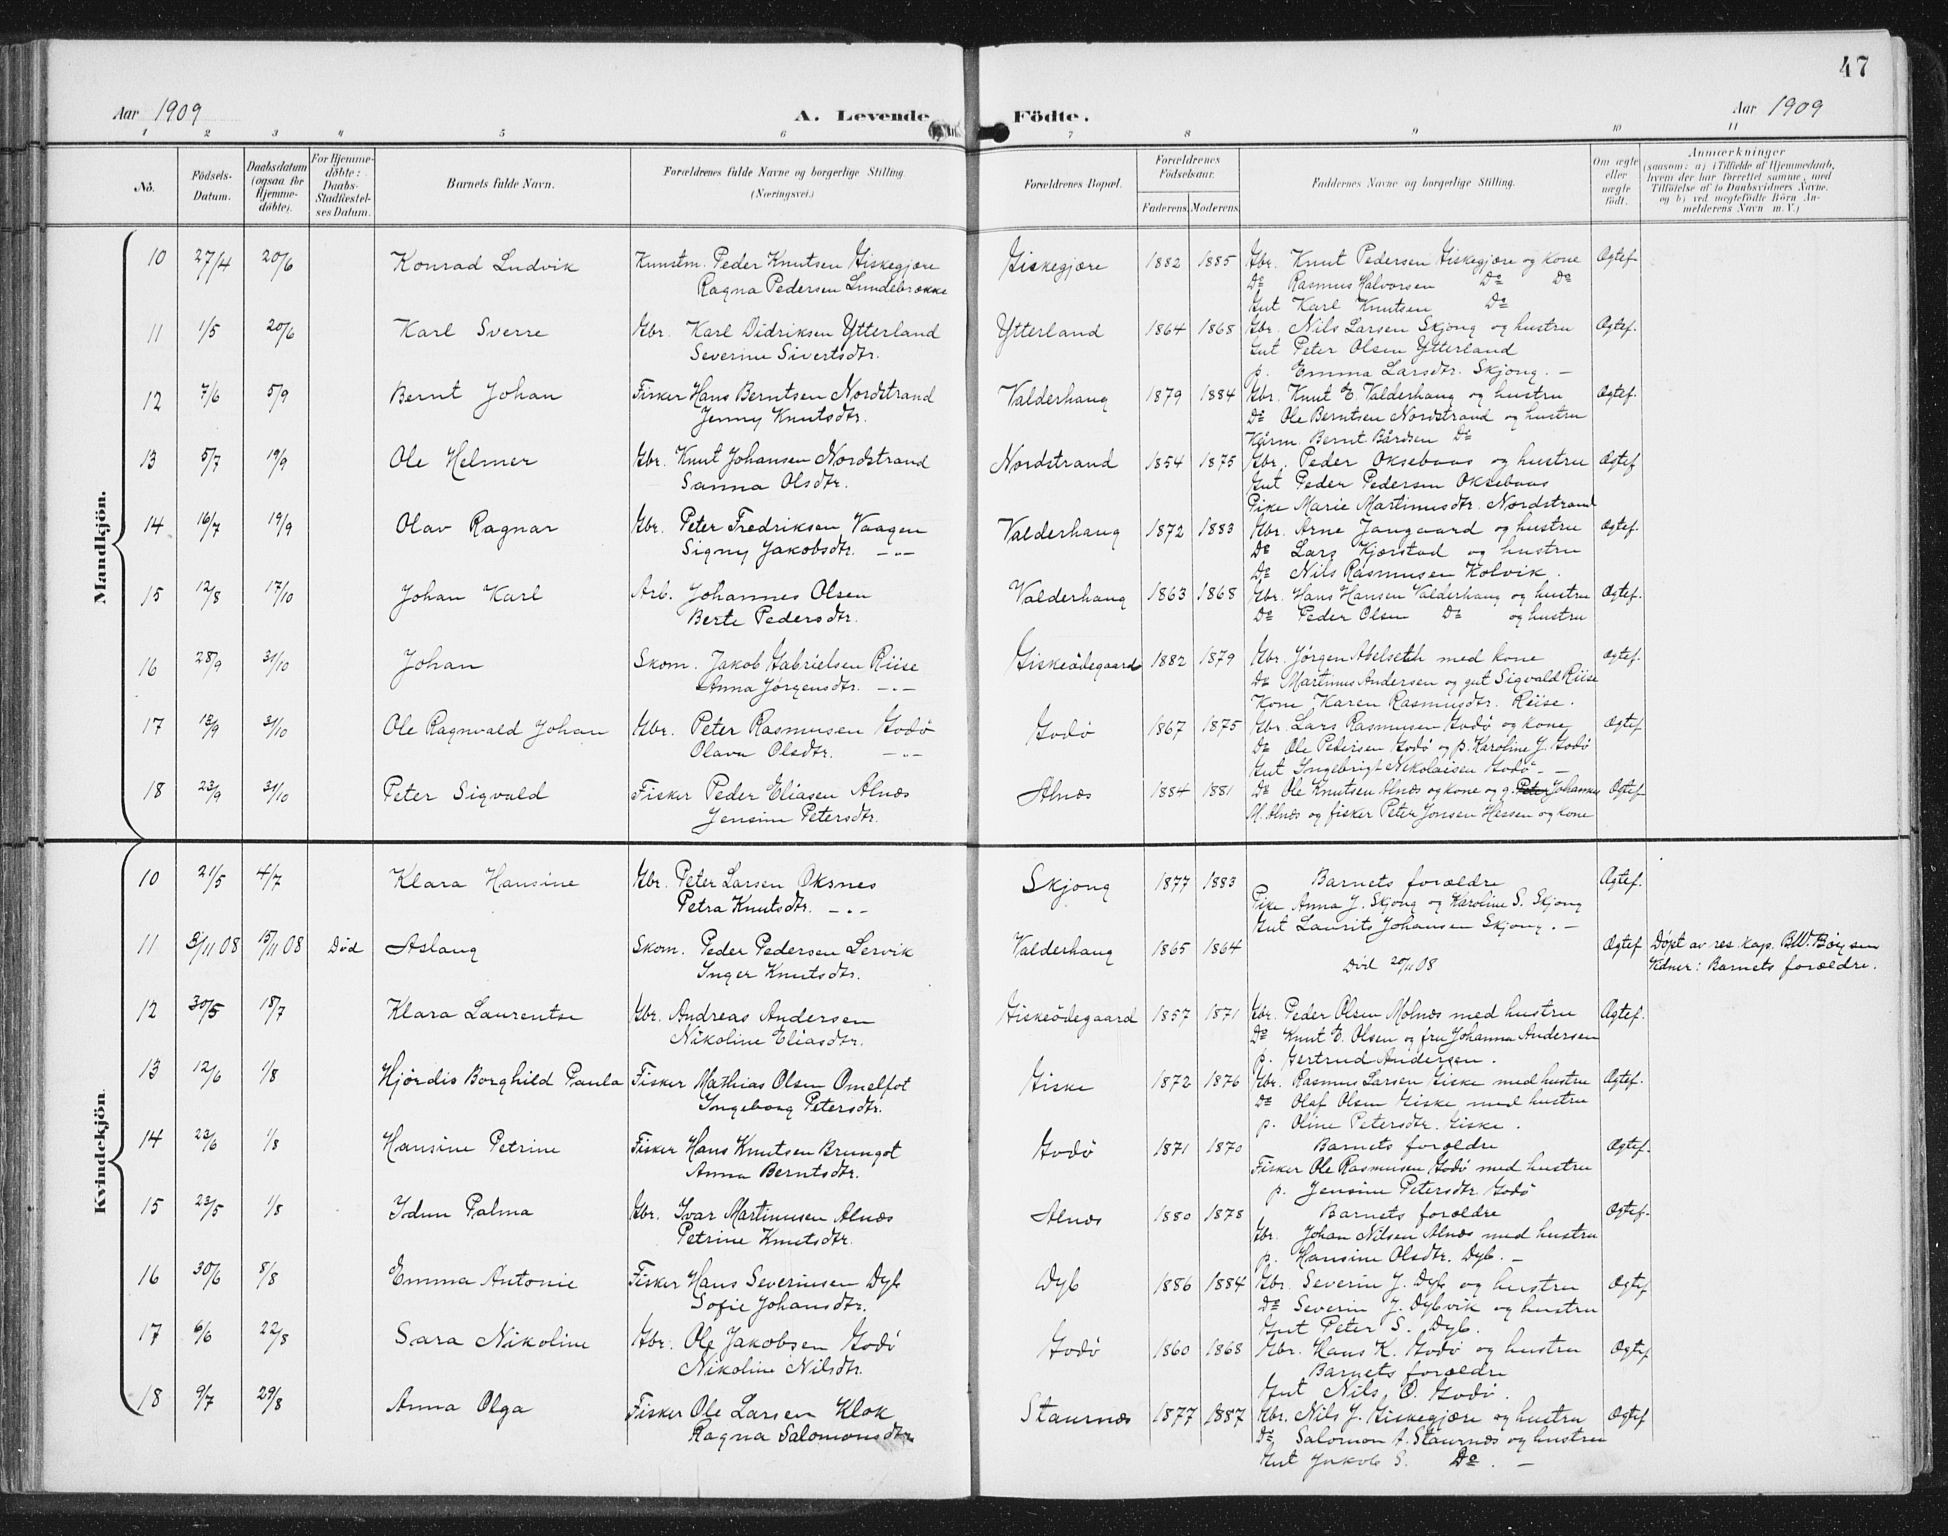 47
Aar 1909 A. Levende Födte. Aar 1909
1 2 3 4 5 6 7 8 9 10 11
No. Födsels-Datum. Daabsdatum (ogsaa for Hjemme-döbte). For Hjemme-döbte: Daabs-Stadfæstel-ses Datum. Barnets fulde Navn. Forældrenes fulde Navne og borgerlige Stilling. (Næringsvei.) Forældrenes Bopæl. Forældrenes Födselsaar. Faderens. Moderens. Faddernes Navne og borgerlige Stilling. Om ægte eller uægte födt. Anmærkninger (saasom: a) i Tilfælde af Hjemmedaab, hvem der har forrettet samme, med Tilföielse af to Daabsvidners Navne, og b) ved uægtefödte Börn An-melderens Navn m. V.)
Mandkjön.
10 27/4 20/6 Konrad Ludvik Kunstm. Peder Knutsen Giskegjære Giskegjære 1882 1885 Gbr. Knut Pedersen Giskegjære og kone Ægtef.
Ragna Pedersen Lundebrække Do Rasmus Halvorsen Do Do
Gut Karl Knutsen Do
11 1/5 20/6 Karl Sverre Gbr. Karl Didriksen Ytterland Ytterland 1864 1868 Gbr. Nils Larsen Skjong og hustru Ægtef.
Severine Sivertsdtr. Gut Peter Olsen Ytterland
p. Emma Larsdtr. Skjong. —
12 7/6 5/9 Bernt Johan Fisker Hans Berntsen Nordstrand Valderhaug 1879 1884 Gbr. Knut E. Valderhaug og hustru Ægtef.
Jenny Knutsdtr. Do Ole Berntsen Nordstrand og hustru
Kårm. Bernt Bårdsen Do
13 5/7 19/9 Ole Helmer Gbr. Knut Johansen Nordstrand Nordstrand 1854 1875 Gbr. Peder Oksebaas og hustru Ægtef
Sanna Olsdtr. Gut Peder Pedersen Oksebaas
Pike Marie Martinusdtr. Nordstrand
14 16/7 19/9 Olav Ragnar Gbr. Peter Fredriksen Vaagen Valderhaug 1872 1883 Gbr. Arne Jangaard og hustru Ægtef.
Signy Jakobsdtr. —"— Do Lars Kjærstad og hustru
Do Nils Rasmussen Kolvik.
15 12/8 17/10 Johan Karl Arb. Johannes Olsen Valderhaug 1863 1868 Gbr. Hans Hansen Valderhaug og hustru Ægtef.
Berte Pedersdtr. Do Peder Olsen Do og hustru
16 28/9 31/10 Johan Skom. Jakob Gabrielsen Riise Giskeödegaard 1882 1879 Gbr. Jørgen Abelseth med kone Ægtef.
Anna Jørgensdtr. —"— Do Martinus Andersen og gut Sigvald Riise
Kone Karen Rasmusdtr. Riise.
17 13/9 31/10 Ole Ragnvald Johan Gbr. Peter Rasmussen Godø Godø 1867 1875 Gbr. Lars Rasmussen Godø og kone Ægtef
Olava Olsdtr. —"— Do Ole Petersen Godø og p. Karoline J. Godø
Gut Ingebrigt Nikolaisen Godø —
18 23/9 31/10 Peter Sigvald Fisker Peder Eliasen Alnæs Alnæs 1884 1881 Do Ole Knutsen Alnæs og kone og g. Peter Johannes Ægtef
Jensine Petersdtr. M. Alnæs og fisker Peter Jonsen Hessen og kone
Kvindekjön.
10 21/5 4/7 Klara Hansine Gbr. Peter Larsen Oksnes Skjong 1877 1883 Barnets forældre Ægtef.
Petra Knutsdtr. —"— Pike Anna J. Skjong og Karoline S. Skjong
Gut Laurits Johansen Skjong. —
11 3/11 08 15/11 08 Död Aslaug Skom. Peder Pedersen Lervik Valderhaug 1865 1864 Ægtef Döpt av res. kap. B.W. Böigsen
Inger Knutsdtr. Död 20/11 08 Vidner: Barnets forældre.
12 30/5 18/7 Klara Laurentse Gbr. Andreas Andersen Giskeödegaard 1857 1871 Gbr. Peder Olsen Molnæs med hustru Ægtef.
Nikoline Eliasdtr. Do Knut E. Olsen og fru Johanna Andersen
p. Gertrud Andersen.
13 12/6 1/8 Hjørdis Borghild Paula Fisker Mathias Olsen Omelfot Giske 1872 1876 Gbr. Rasmus Larsen Giske med hustru Ægtef.
Ingeborg Petersdtr. Do Olaf Olsen Giske med hustru
p. Oline Petersdtr. Giske.
14 23/6 1/8 Hansine Petrine Fisker Hans Knutsen Brungot Godø 1871 1870 Barnets forældre Ægtef.
Anna Berntsdtr. Fisker Ole Rasmussen Godø med hustru
p. Jensine Petersdtr. Godø
15 23/5 1/8 Idun Palma Gbr. Ivar Martinusen Alnæs Alnæs 1880 1878 Barnets forældre Ægtef.
Petrine Knutsdtr. Gbr. Johan Nilsen Alnæs med hustru
p. Hansine Olsdtr. Dyb. —
16 30/6 8/8 Emma Antonie Fisker Hans Severinsen Dyb Dyb 1886 1884 Gbr. Severin J. Dyb og hustru Ægtef
Sofie Johansdtr. Do Severin J. Dybvik og hustru
Gut Peter S. Dyb.
17 6/6 22/8 Sara Nikoline Gbr. Ole Jakobsen Godø Godø 1860 1868 Gbr. Hans K. Godø og hustru Ægtef
Nikoline Nilsdtr. Barnets forældre
Gut Nils O. Godø.
18 9/7 29/8 Anna Olga Fisker Ole Larsen Klok Staurnæs 1877 1887 Gbr. Nils J. Giskegjære og hustru Ægtef
Ragna Salomonsdtr. Do Salomon A. Staurnæs og hustru
Gut Jakob S. Do. —